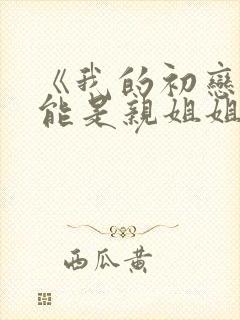 《我的初戀
能是親姐姐
西瓜黃